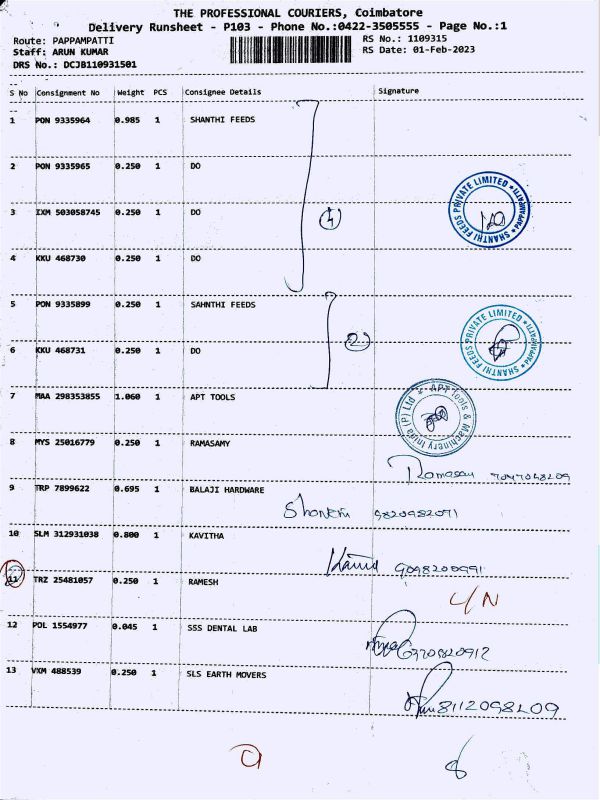 THE PROFESSIONAL COURIERS, Coimbatore
Delivery Runsheet - P103 - Phone No.:0422-3505555 - Page No.:1
Route: PAPPAMPATTI RS No.: 1109315
Staff: ARUN KUMAR RS Date: 01-Feb-2023
DRS No.: DCJB110931501
S No Consignment No Weight PCS Consignee Details Signature
1 PON 9335964 0.985 1 SHANTHI FEEDS
2 PON 9335965 0.250 1 DO
3 IXM 503058745 0.250 1 DO
4
SHANTHI FEEDS PRIVATE LIMITED * PAPPAMPATTI *
4 KKU 468730 0.250 1 DO
5 PON 9335899 0.250 1 SAHNTHI FEEDS
2
SHANTHI FEEDS PRIVATE LIMITED * PAPPAMPATTI *
6 KKU 468731 0.250 1 DO
7 MAA 298353855 1.060 1 APT TOOLS
APT Tools & Machinery India (P) Ltd *
8 MYS 25016779 0.250 1 RAMASAMY
9 TRP 7899622 0.695 1 BALAJI HARDWARE
9820982071
10 SLM 312931038 0.800 1 KAVITHA
9098200991
11 TRZ 25481057 0.250 1 RAMESH
12 POL 1554977 0.045 1 SSS DENTAL LAB
13 VXM 488539 0.250 1 SLS EARTH MOVERS
8112098209